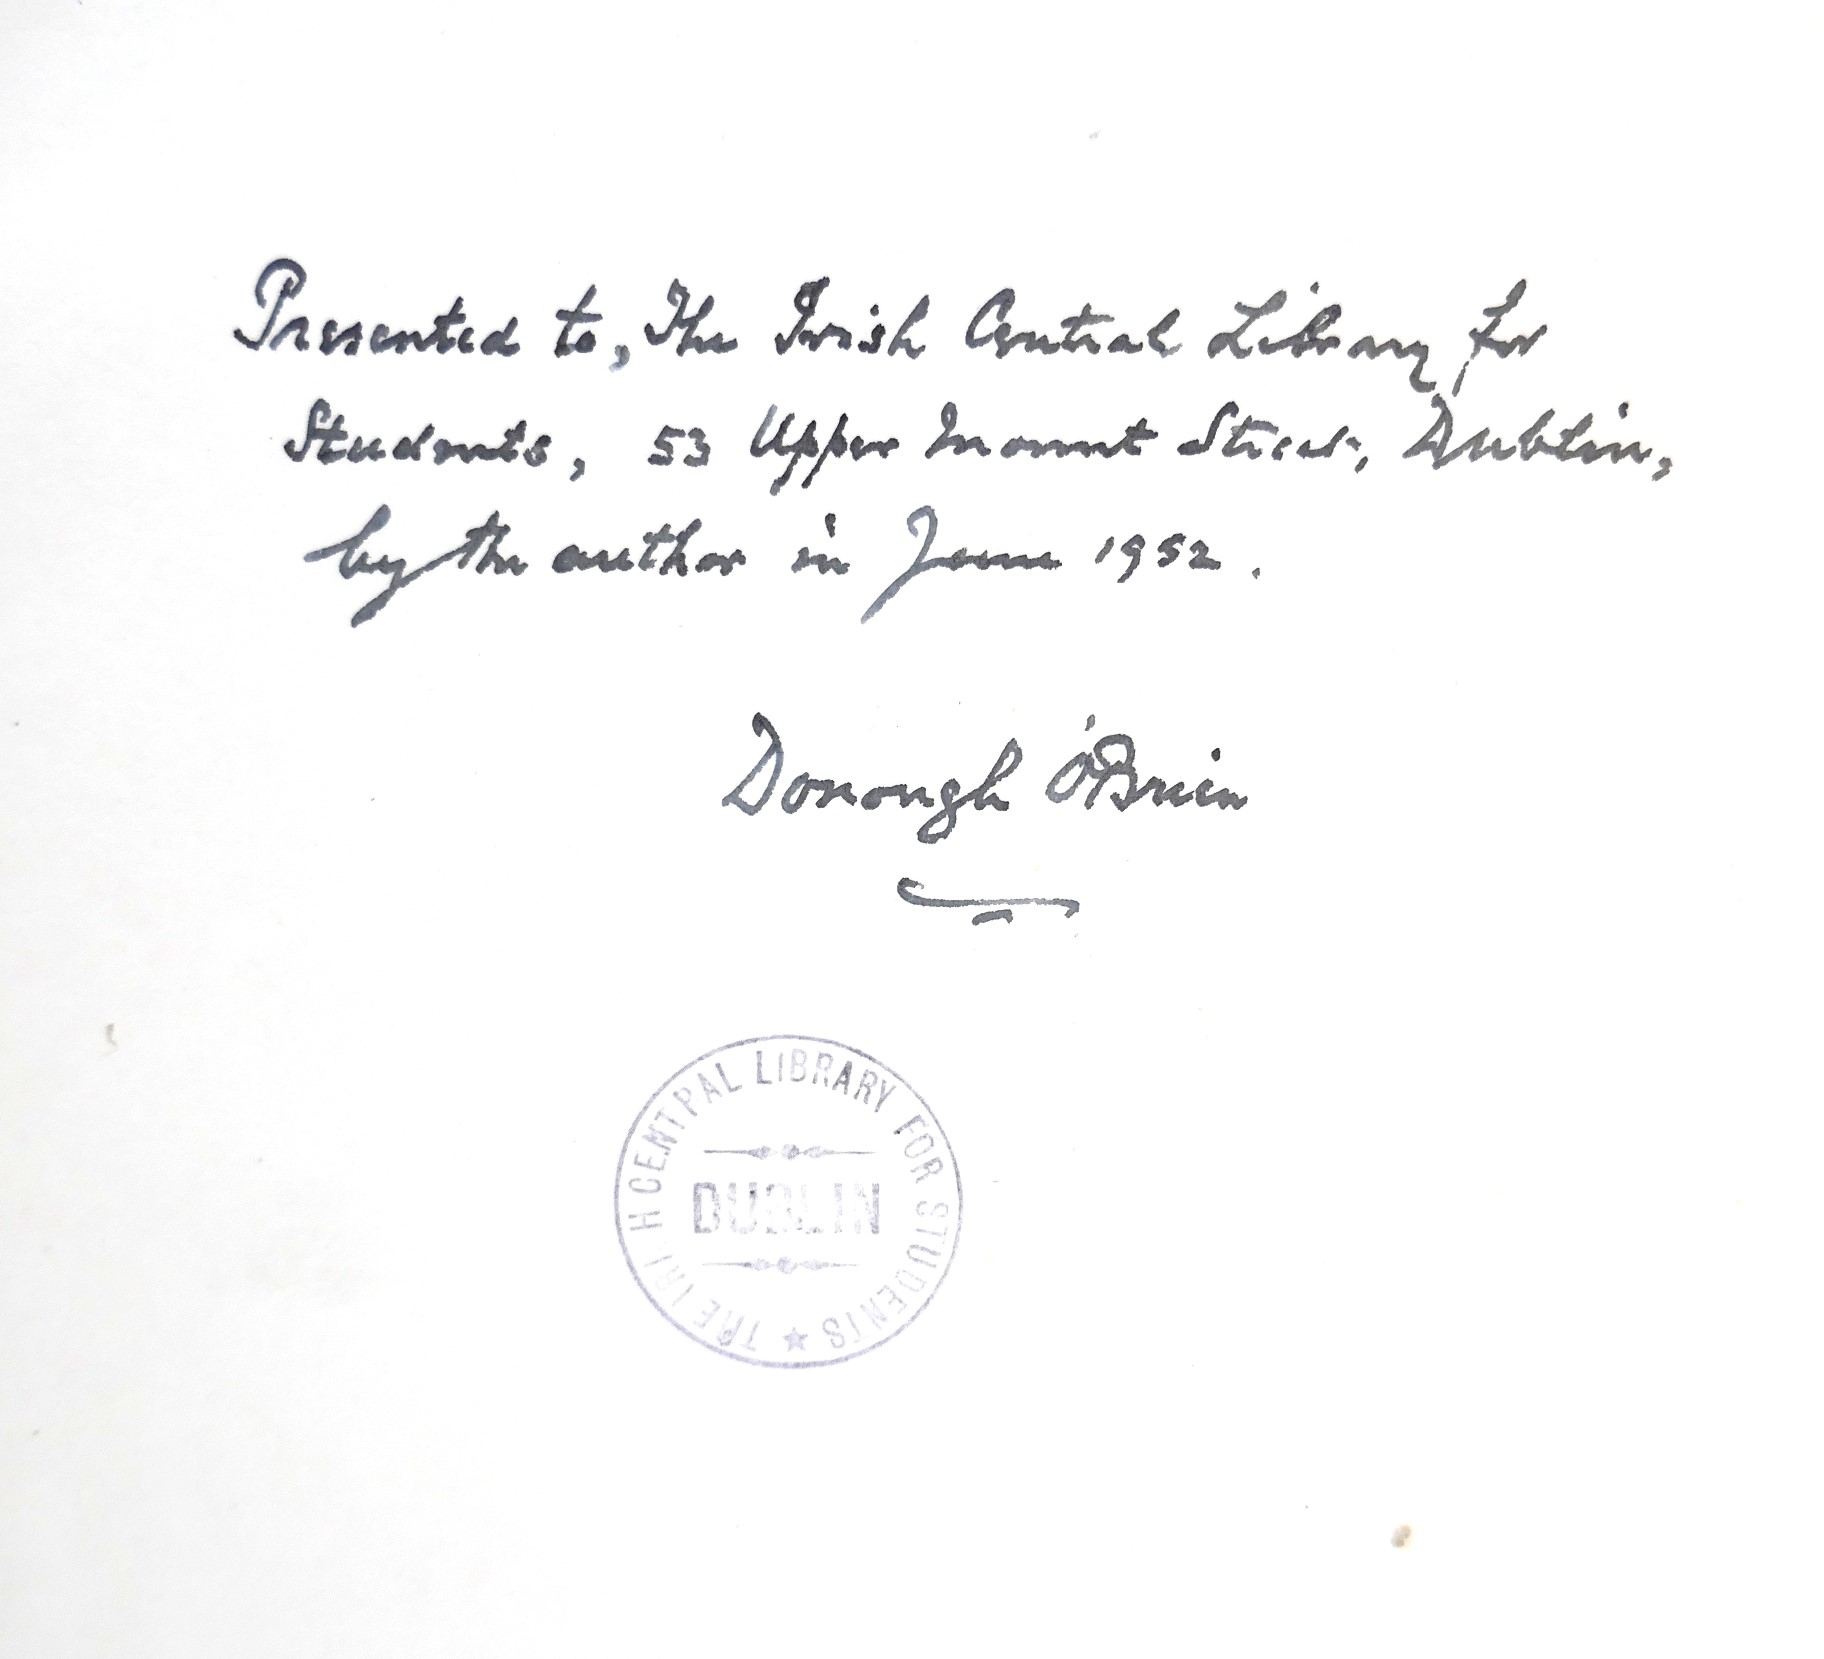 Presented to, The Irish Central Library for
Students, 53 Upper Mount Street, Dublin,
by the author in June 1952.
Donough O'Brien
THE IRISH CENTRAL LIBRARY FOR STUDENTS ★
DUBLIN